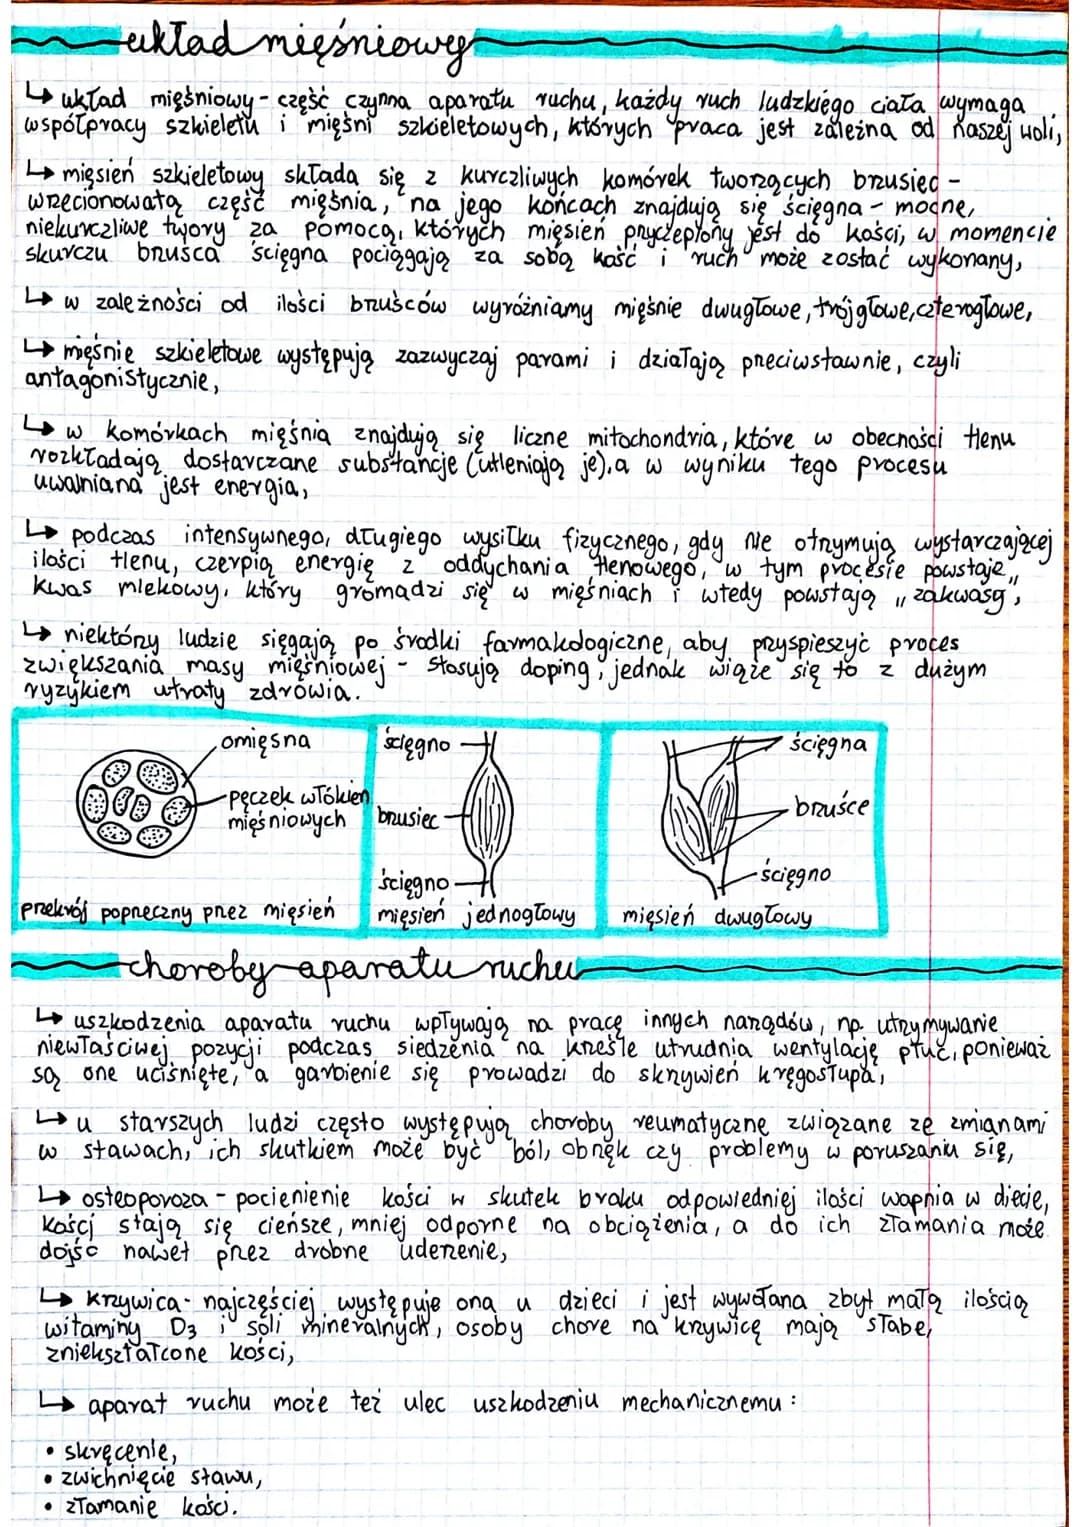 układ mięśniowy
↳ układ mięśniowy - część czynna aparatu ruchu, każdy ruch ludzkiego ciała wymaga
współpracy szkieletu i mięśni szkieletowych, których praca jest zależna od naszej woli,
↳ mięsień szkieletowy składa się z kurczliwych komórek tworzących brzusiec -
wrzecionowatą część mięśnia, na jego końcach znajdują się ścięgna - mocne,
niekurczliwe twory za pomocą, których mięsień przyczepiony jest do kości, w momencie
skurczu brzuśca ścięgna pociągają za sobą kość i ruch może zostać wykonany,
↳ w zależności od ilości brzuśców wyróżniamy mięśnie dwugłowe, trójgłowe, czterogłowe,
↳ mięśnie szkieletowe występują zazwyczaj parami i działają przeciwstawnie, czyli
antagonistycznie,
↳ w komórkach mięśnia znajdują się liczne mitochondria, które w obecności tlenu
rozkładają dostarczane substancje (utleniają je), a w wyniku tego procesu
uwalniana jest energia,
↳ podczas intensywnego, długiego wysiłku fizycznego, gdy nie otrzymują wystarczającej
ilości tlenu, czerpią energię z oddychania tlenowego, w tym procesie powstaje
kwas mlekowy, który gromadzi się w mięśniach i wtedy powstają „zakwasy",
↳ niektórzy ludzie sięgają po środki farmakologiczne, aby przyspieszyć proces
zwiększania masy mięśniowej - stosują doping, jednak wiąże się to z dużym
ryzykiem utraty zdrowia.
omięsna
pęczek włókien
mięśniowych
przekrój poprzeczny przez mięsień
ścięgno
brzusiec
ścięgno
mięsień jednogłowy
ścięgna
brzuśce
ścięgno
mięsień dwugłowy
choroby aparatu ruchu
↳ uszkodzenia aparatu ruchu wpływają na pracę innych narządów, np. utrzymywanie
niewłaściwej pozycji podczas siedzenia na krześle utrudnia wentylację płuc, ponieważ
są one uciśnięte, a garbienie się prowadzi do skrzywień kręgosłupa,
↳ u starszych ludzi często występują choroby reumatyczne związane ze zmianami
w stawach, ich skutkiem może być ból, obrzęk czy problemy w poruszaniu się,
↳ osteoporoza - pocienienie kości w skutek braku odpowiedniej ilości wapnia w diecie,
kości stają się cieńsze, mniej odporne na obciążenia, a do ich złamania może
dojść nawet przez drobne uderzenie,
↳ krzywica - najczęściej występuje ona u dzieci i jest wywołana zbyt małą ilością
witaminy D3 i soli mineralnych, osoby chore na krzywicę mają słabe,
zniekształcone kości,
↳ aparat ruchu może też ulec uszkodzeniu mechanicznemu:
• skręcenie,
• zwichnięcie stawu,
• złamanie kości.